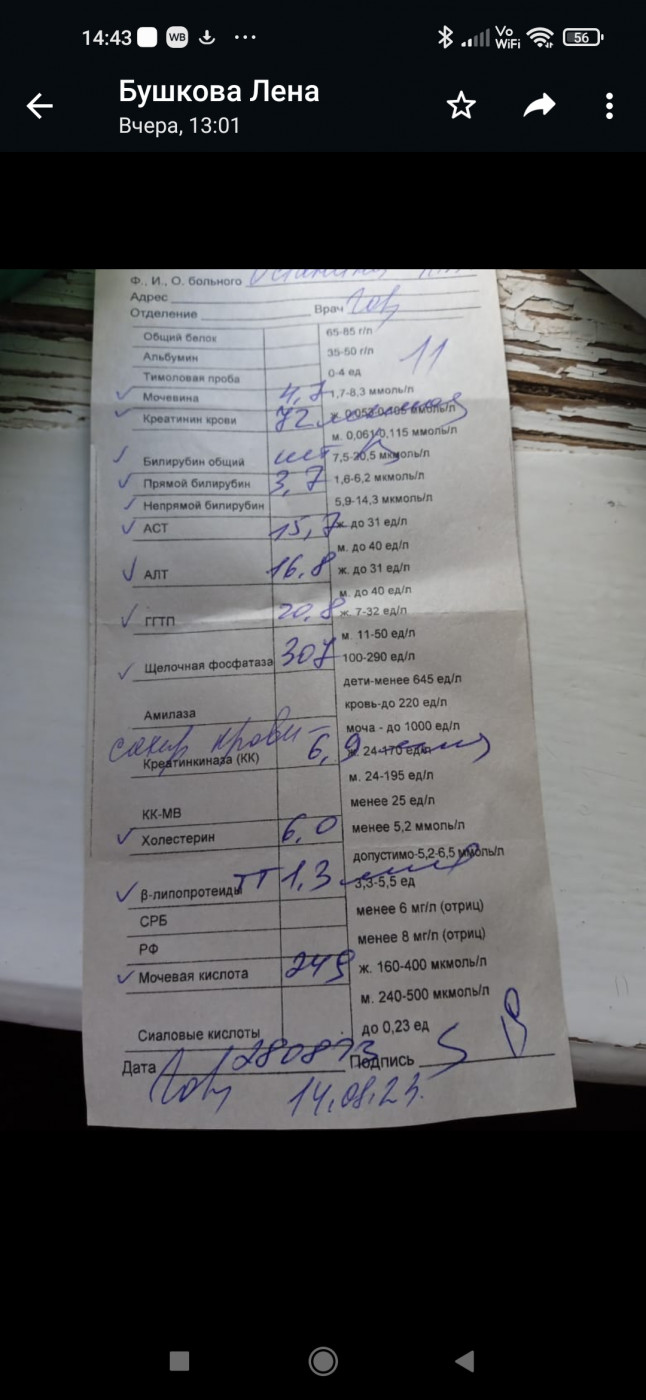 14:43 WB ... Vo WiFi 56
Бушкова Лена
Вчера, 13:01
Ф., И., О. больного
Адрес
Отделение Врач
Общий белок 65-85 г/л
Альбумин 35-50 г/л
11
Тимоловая проба 0-4 ед
Мочевина 4,7 1,7-8,3 ммоль/л
Креатинин крови 72 ммоль/л
м. 0,061-0,115 ммоль/л
Билирубин общий 7,5-20,5 мкмоль/л
Прямой билирубин 3,7 1,6-6,2 мкмоль/л
Непрямой билирубин 5,9-14,3 мкмоль/л
АСТ 15,7 ж. до 31 ед/л
м. до 40 ед/л
АЛТ 16,8 ж. до 31 ед/л
м. до 40 ед/л
ГГТП 20,8 ж. 7-32 ед/л
м. 11-50 ед/л
Щелочная фосфатаза 307 100-290 ед/л
дети-менее 645 ед/л
Амилаза кровь-до 220 ед/л
моча - до 1000 ед/л
сахар крови - 6,9
Креатинкиназа (КК) ж. 24-170 ед/л
м. 24-195 ед/л
КК-МВ менее 25 ед/л
Холестерин 6,0 менее 5,2 ммоль/л
допустимо-5,2-6,5 ммоль/л
β-липопротеиды ТГ 1,3 3,3-5,5 ед
СРБ менее 6 мг/л (отриц)
РФ менее 8 мг/л (отриц)
Мочевая кислота 249 ж. 160-400 мкмоль/л
м. 240-500 мкмоль/л
Сиаловые кислоты до 0,23 ед
Дата Подпись
14.08.23.